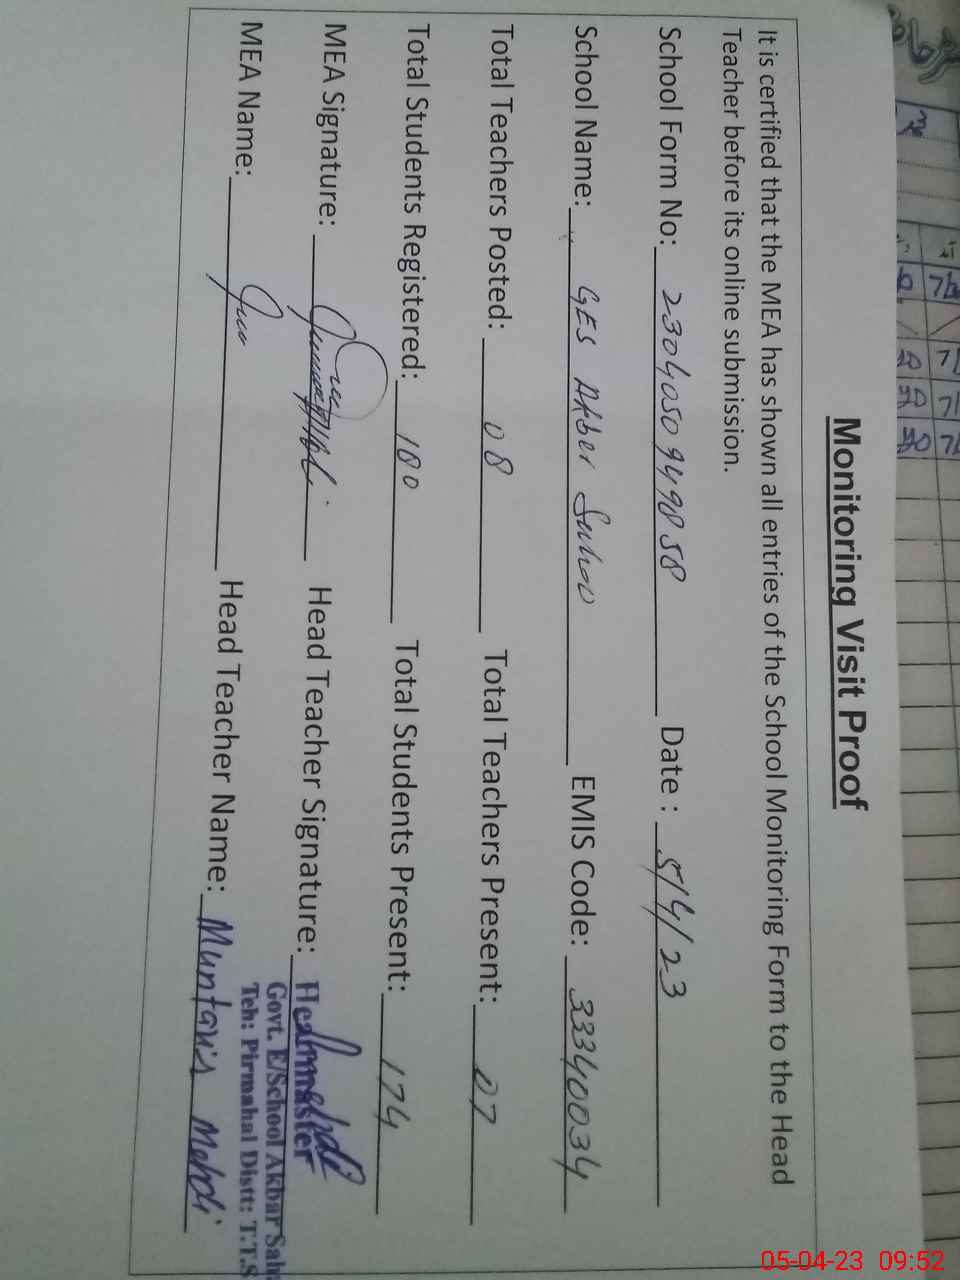 Monitoring Visit Proof
It is certified that the MEA has shown all entries of the School Monitoring Form to the Head
Teacher before its online submission.
School Form No: 23040509449858 Date : 5/4/23
School Name: GES Akber Sahoo EMIS Code: 33340034
Total Teachers Posted: 08 Total Teachers Present: 07
Total Students Registered: 180 Total Students Present: 174
MEA Signature: Head Teacher Signature:
Headmaster
Govt. E/School Akbar
Teh: Pirmahal Distt: T.T.S
MEA Name: Head Teacher Name: Muntaris Mehdi
05-04-23 09:52